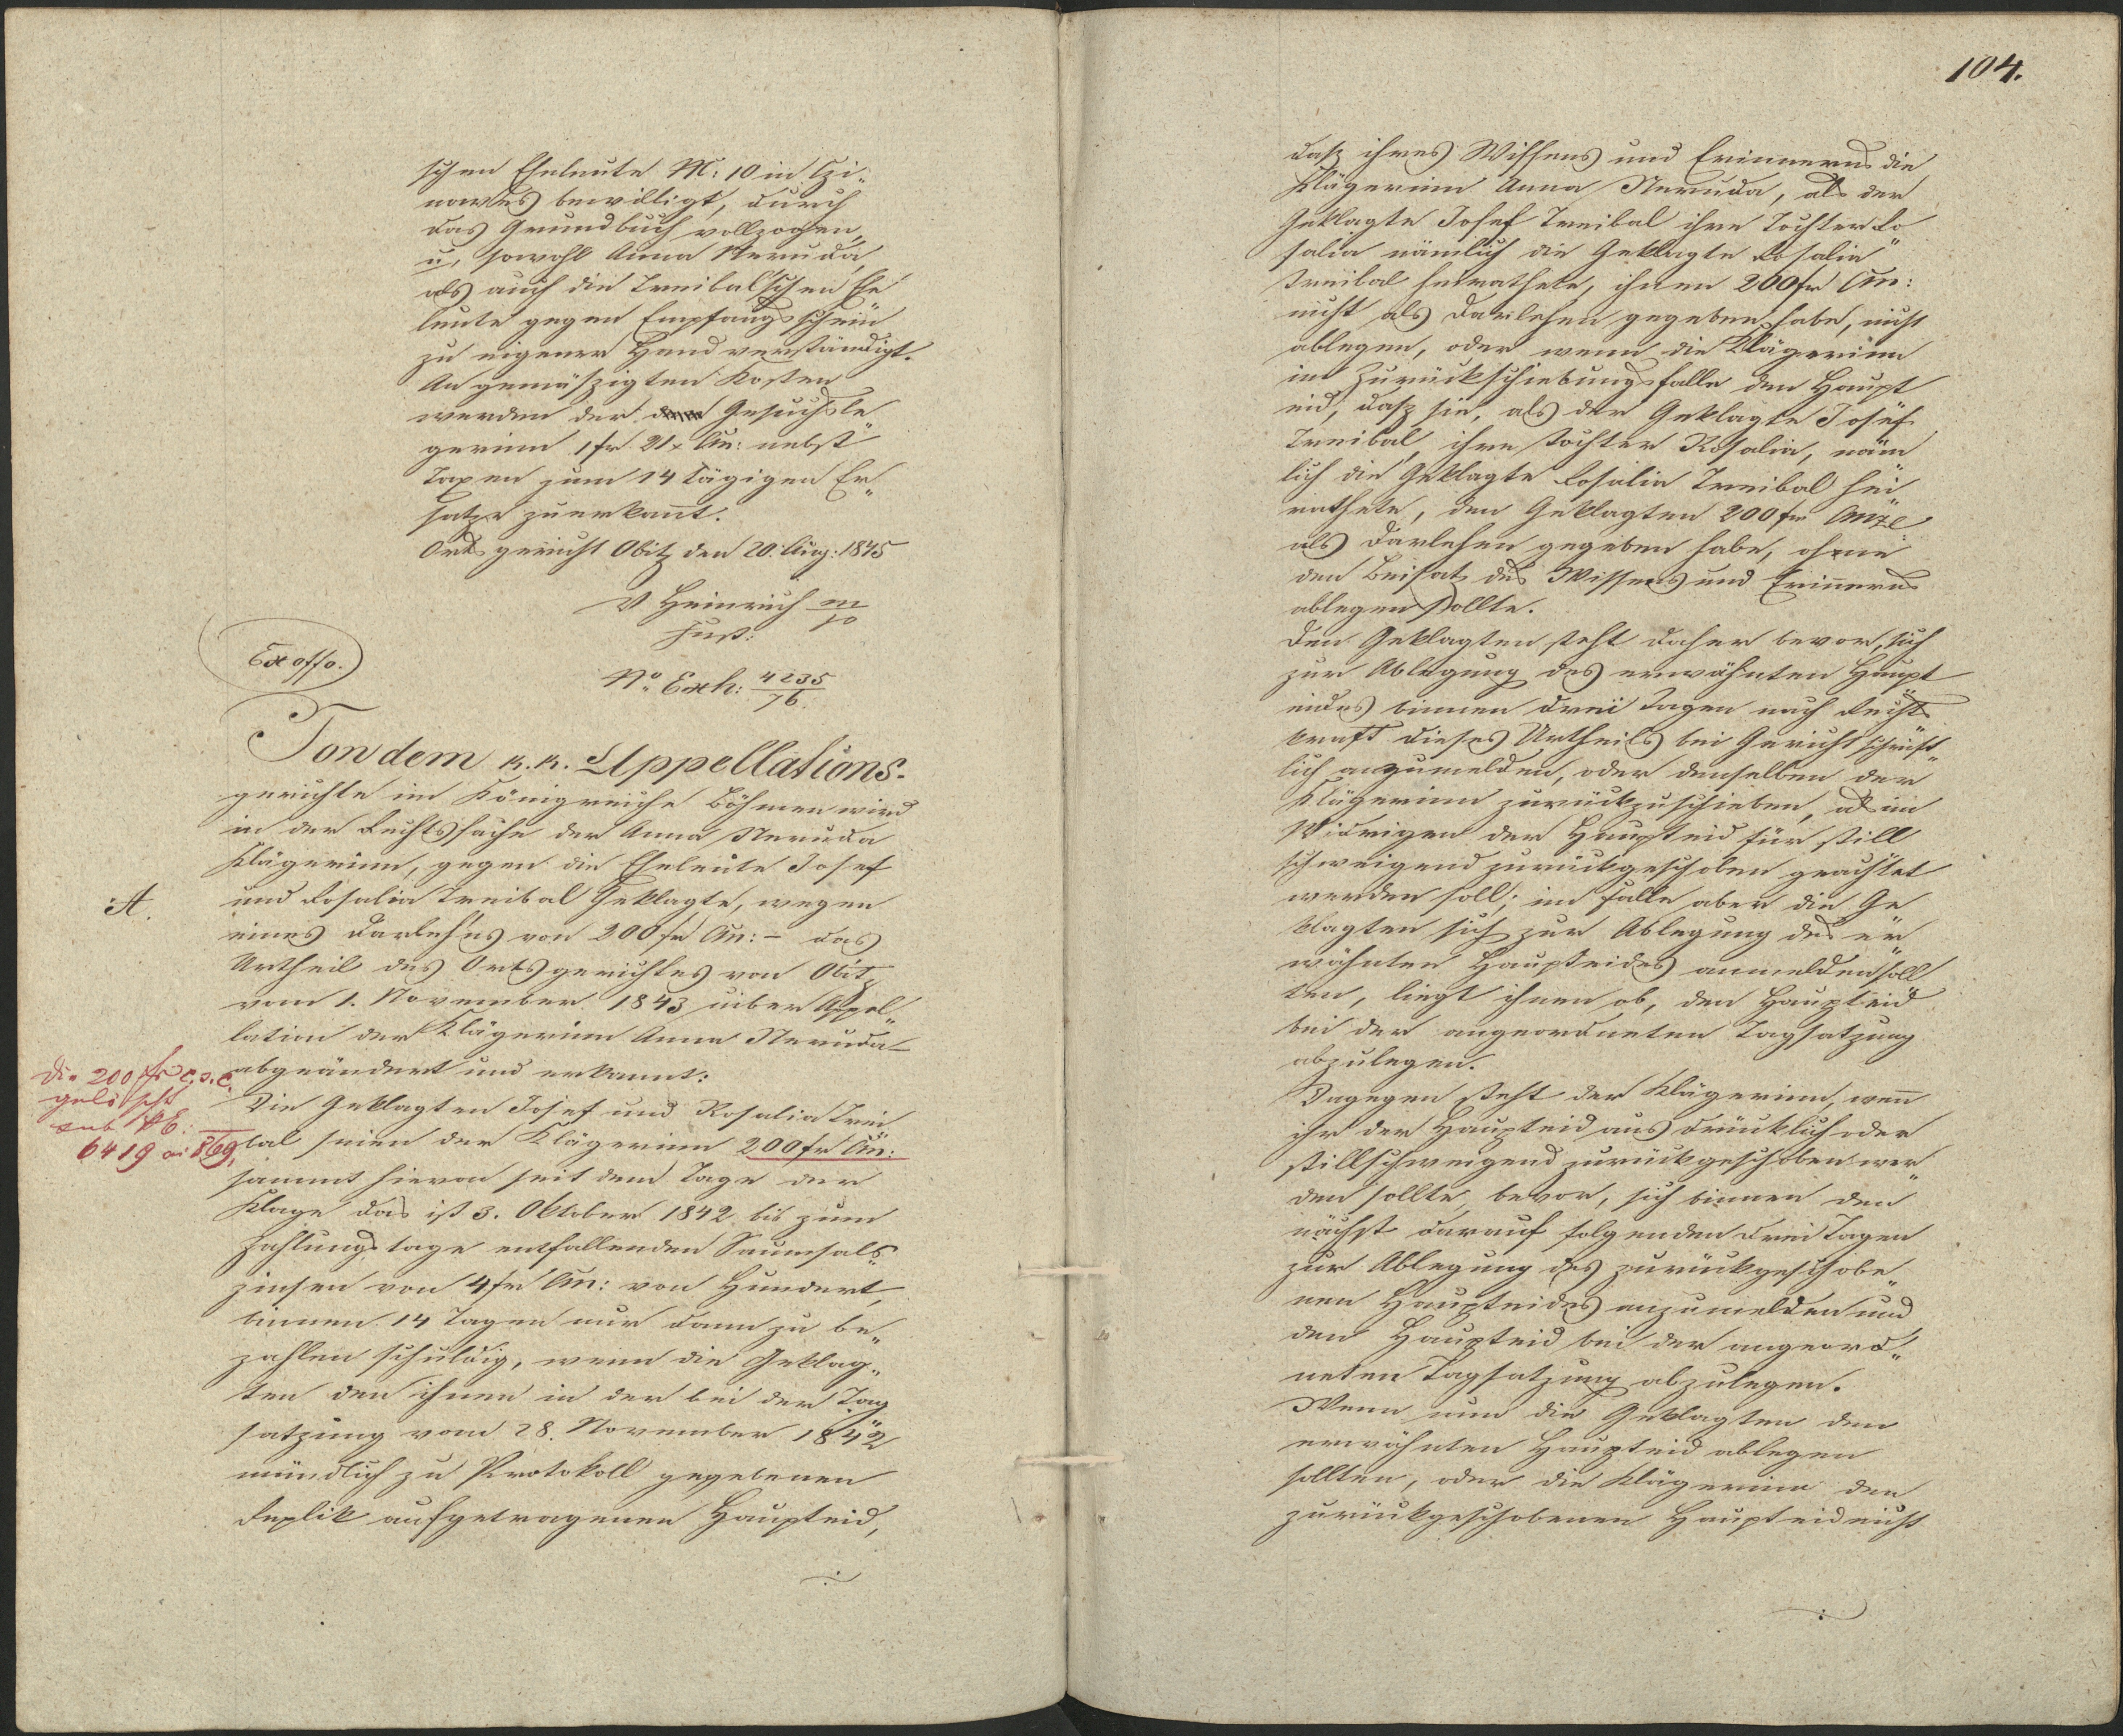 schen Eheleute N: 10 in Czi„
nowes bewilligt, durch
das Grundbuch vollzogen,
u, sowohl Anna Neruda,
als auch die Treibal'schen Ehe
leute gegen Empfangsschein
zu eigener Hand verständigt.
An gemäßigten Kosten
werden der Gesuchsle
gerinn 1 fr 21 x CM: nebst
Taxen zum 14 tägigen Er„
satze zuerkannt.
Ortsgericht Obitz den 20. Aug: 1845
V Heinrich m/p
Just:
Ex offo.
No Exh: 4235/76.
Von dem k. k. Appellations-
gerichte im Königreiche Böhmen wird
in der Rechtssache der Anna Neruda
Klägerinn, gegen die Eheleute Josef
A. und Rosalia Treibal Geklagte, wegen
eines Darlehns von 200 fr CM: – das
Urtheil des Ortsgerichtes von Obitz
vom 1. November 1843 uiber Appel„
lation der Klägerinn Anna Neruda
abgeändert und erkannt:
Die 200 fr c. s. c.
gelöscht
sub NE:
6419 ai 869,
Die Geklagten Josef und Rosalia Trei
bal seien der Klägerinn 200 fr CM:
sammt hievon seit dem Tage der
Klage das ist 3. Oktober 1842 bis zum
Zahlungstage entfallenden Saumsals„
zinsen von 4 fr CM: von Hundert,
binnen 14 Tagen nur dann zu be„
zahlen schuldig, wenn die Geklag„
ten den ihnen in der bei der Tag
satzung vom 28. November 1842
mündlich zu Protokoll gegebenen
Replik aufgetragenen Haupteid,
104.
daß ihres Wissens und Erinnerns die
Klägerinn Anna Neruda, als der
Geklagte Josef Treibal ihre Tochter Ro
salia nämlich die Geklagte Rosalia
Treibal heirathete, ihnen 200 fr CM:
nicht als Darlehen gegeben habe, nicht
ablegen, oder wenn die Klägerinn
im Zurückschiebungsfalle den Haupt
eid, daß sie, als der Geklagte Josef
Treibal, ihre Tochter Rosalia, näm
lich die Geklagte Rosalia Treibal hei
rathete, den Geklagten 200 fr
als Darlehen gegeben habe, ohne
den Beisatz des Wissens und Erinnerns
ablegen sollte.
Den Geklagten steht daher bevor, sich
zur Ablegung des erwähnten Haupt
eides binnen drei Tagen nach Rechts
kraft dieses Urtheils bei Gericht schrift„
lich anzumelden, oder denselben der
Klägerinn zurückzuschieben, als im
Widrigen der Haupteid für still
schweigend zurückgeschoben geachtet
werden soll; im Falle aber die Ge
klagten sich zur Ablegung des er
wähnten Haupteides anmelden soll
ten, liegt ihnen ob, den Haupteid
bei der angeordneten Tagsatzung
abzulegen.
Dagegen steht der Klägerinn, wenn
ihr der Haupteid ausdrücklich oder
stillschweigend zurückgeschoben wer
den sollte, bevor, sich binnen den
nächst darauf folgenden drei Tagen
zur Ablegung des zurückgeschobe
nen Haupteides anzumelden und
den Haupteid bei der angeord„
neten Tagsatzung abzulegen.
Wenn nun die Geklagten den
erwähnten Haupteid ablegen
sollten, oder die Klägerinn den
zurückgeschobenen Haupteid nicht